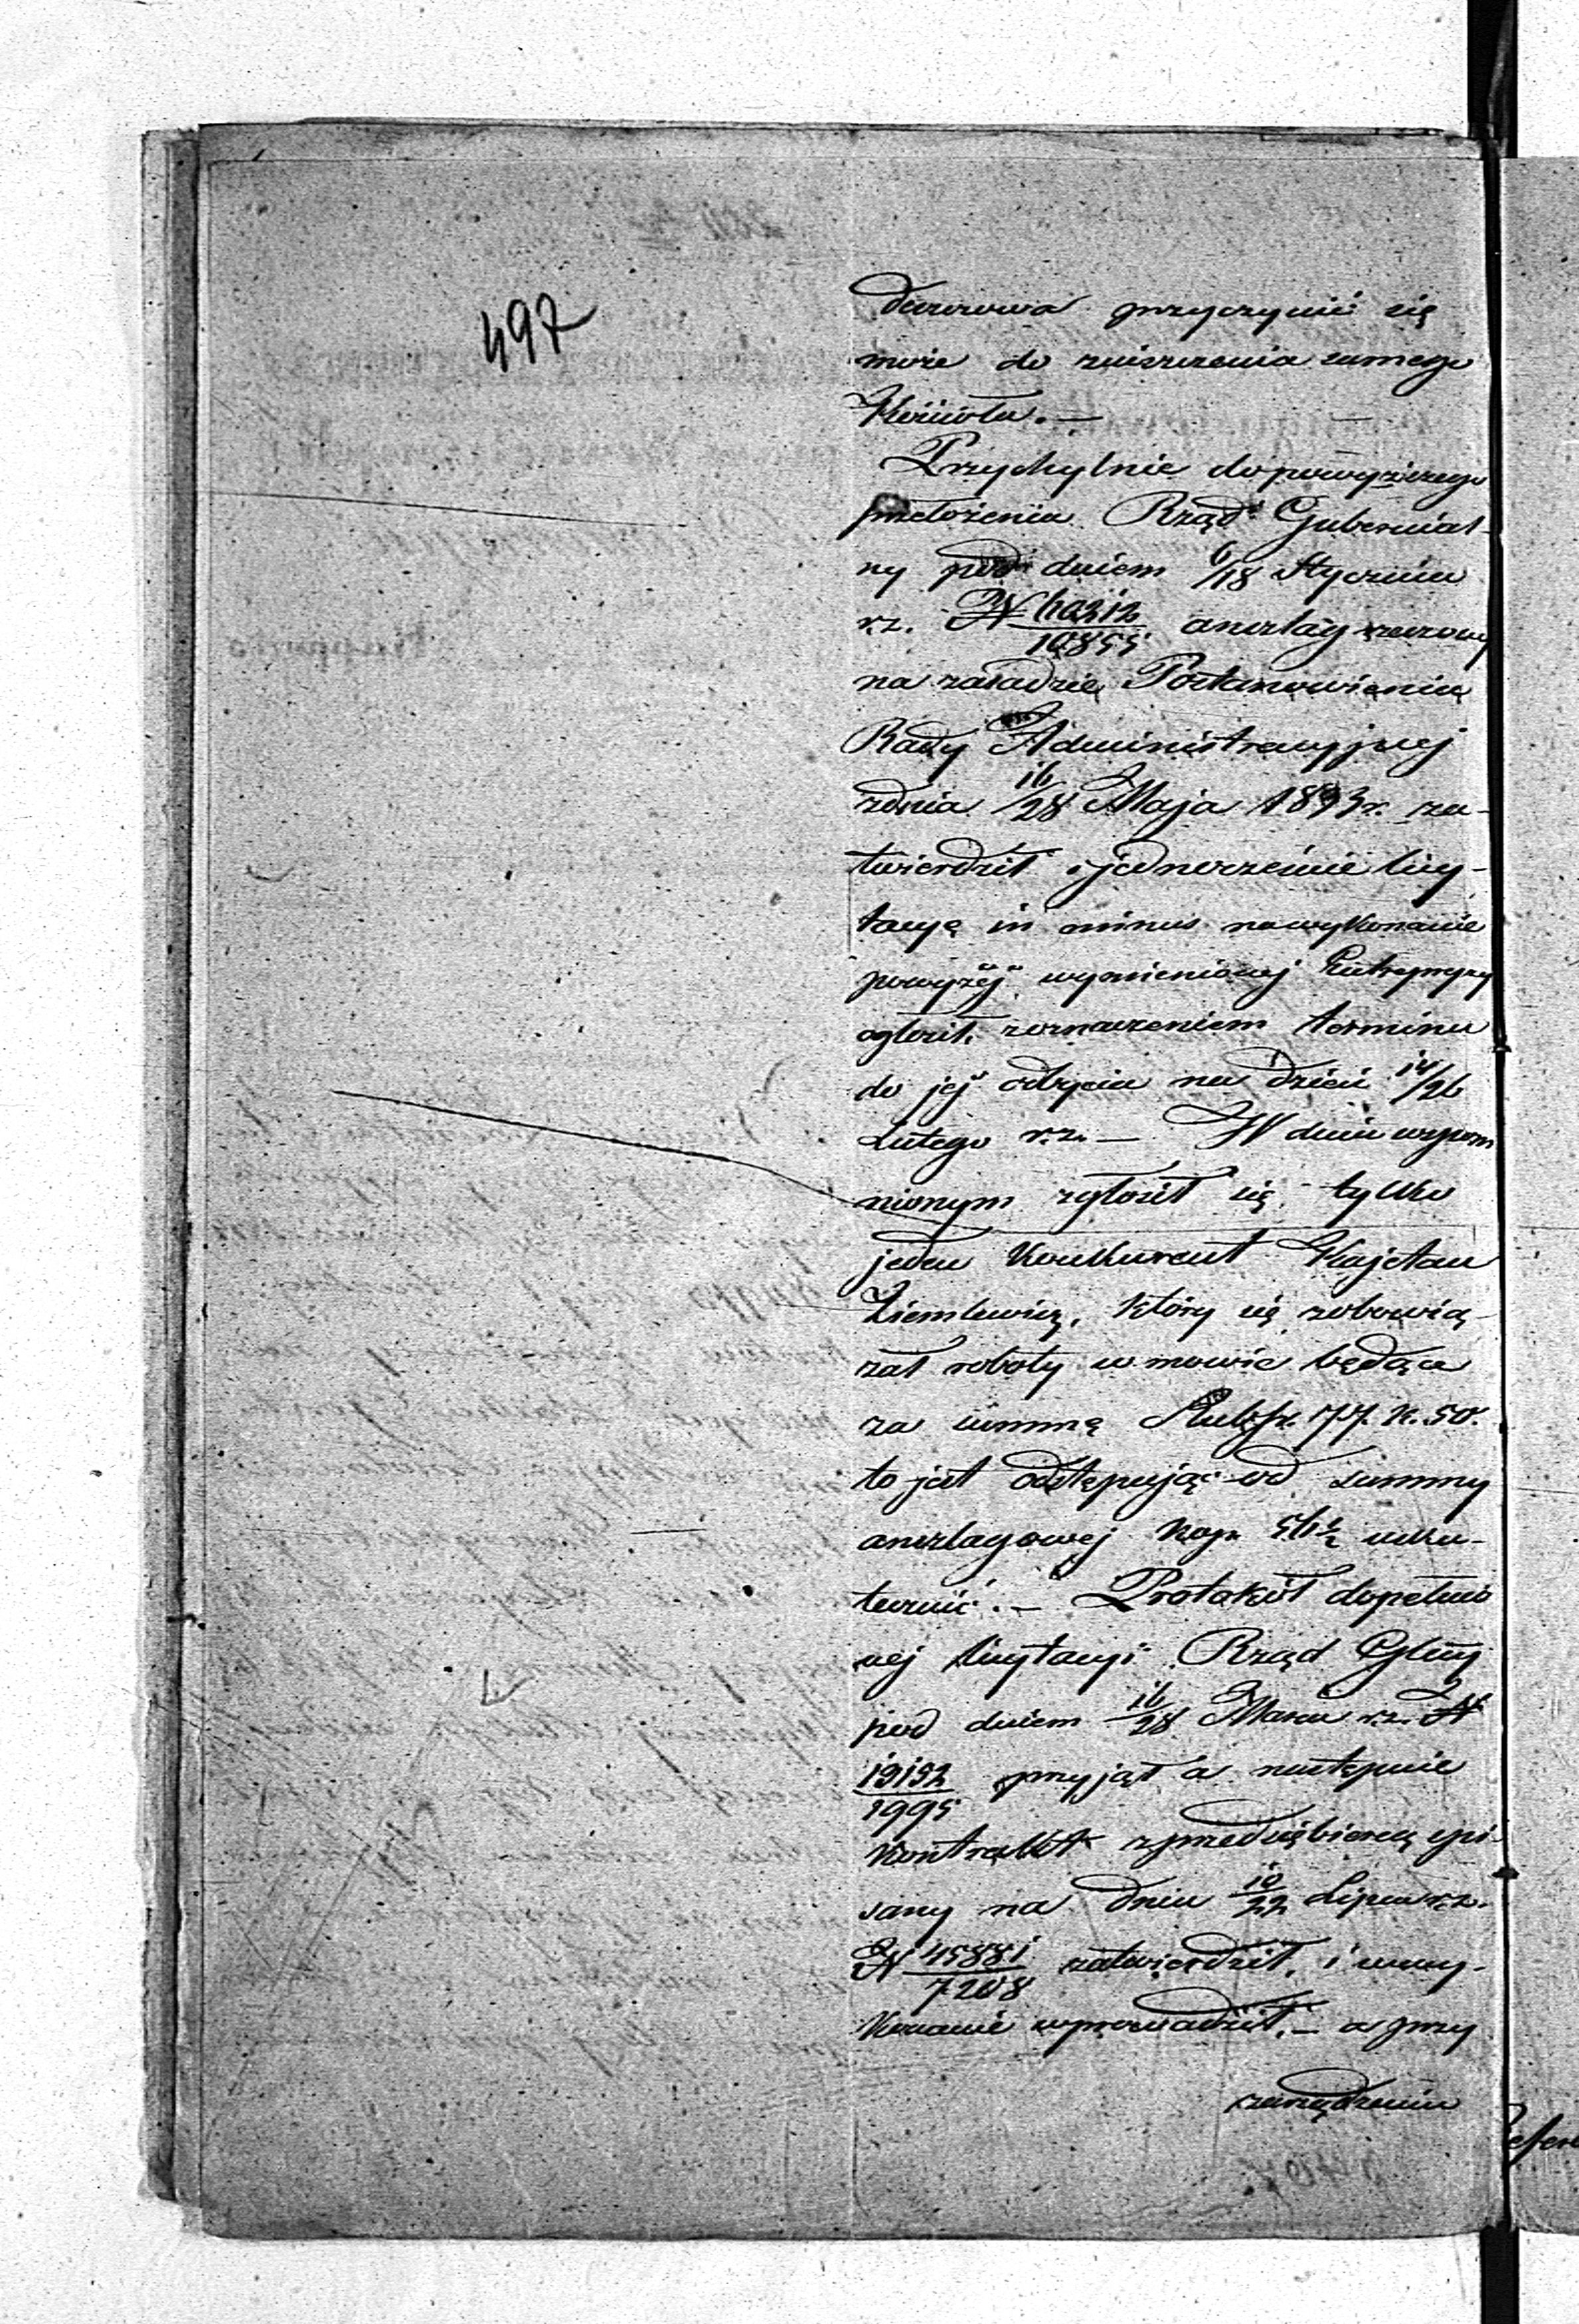 497
deszczowa przyczynić się
może do zniszczenia samego
Kościoła. —
Przychylnie do powyższego
przełożenia Rząd Gubernial-
ny pod dniem 6/18 Stycznia
r.z. N 10855 anszlag rzeczony
na zasadzie Postanowienia
Rady Administracyjnej
z dnia 16/28 Maja 1833 r. za-
twierdził i jednocześnie licy-
tacyą in minus na wykonanie
powyżéj wymienionej Entrepryzy
ogłosił, z oznaczeniem terminu
do jéj odbycia na dzień 14/26
Lutego r.z. — W dniu wspom
nionym zgłosił się tylko
jeden Konkurent Kajetan
Ziemlewicz, który się zobowią-
zał roboty w mowie będące
za summę Rubsr. 177. k. 50.
to jest odstępując od summy
anszlagowej kop. 56½ usku-
tecznić. — Protokół dopełnio
nej licytacyi Rząd Gblny
pod dniem 16/28 Marca r.z. N
19192/1995 przyjął a następnie
Kontrakt z przedsiębiercą spi-
sany na dniu 10/22 Lipca r.z.
N 45881/7208 zatwierdził, i w wy-
konanie wprowadził, — a przy
zarządzeniu